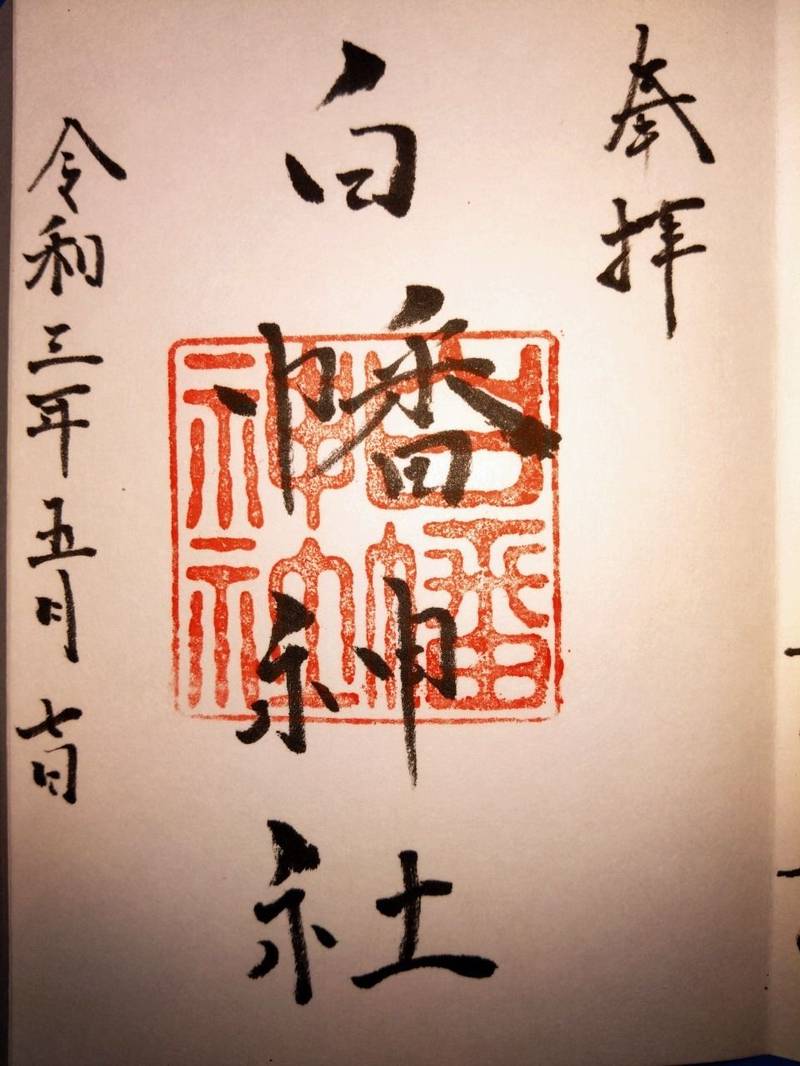 奉拝
白幡神社
白幡神社
令和三年五月七日